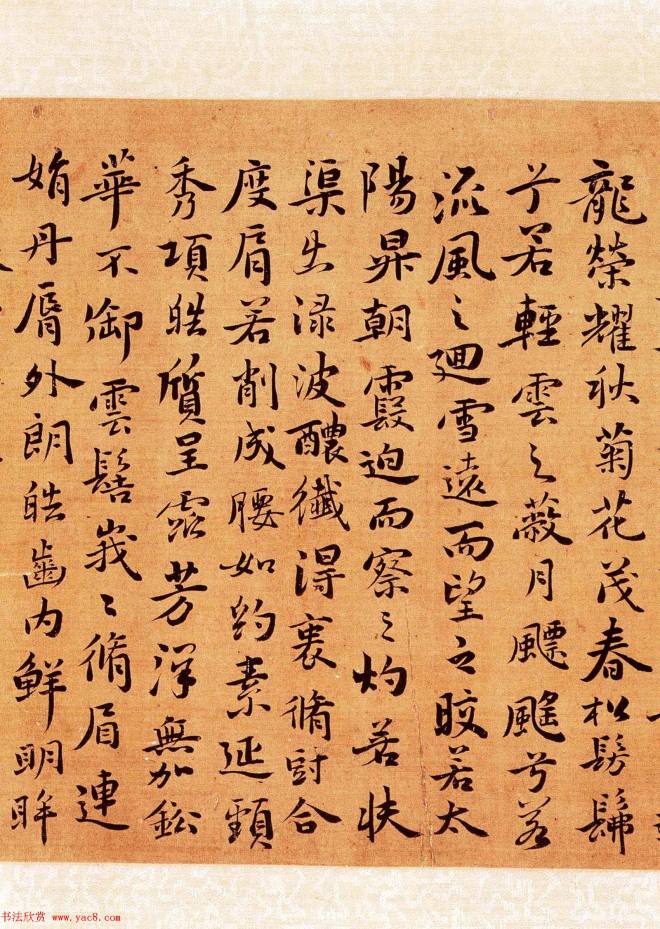 龍榮耀秋菊花茂春松髣髴
兮若輕雲之蔽月飄颻兮若
流風之迴雪遠而望之皎若太
陽昇朝霞迫而察之灼若芙
渠出淥波醲纖得衷脩短合
度肩若削成腰如約素延頸
秀項皓質呈露芳澤無加鉛
華不御雲髻峩〻脩眉連
娟丹脣外朗皓齒內鮮明眸
书法欣赏 www.yac8.com